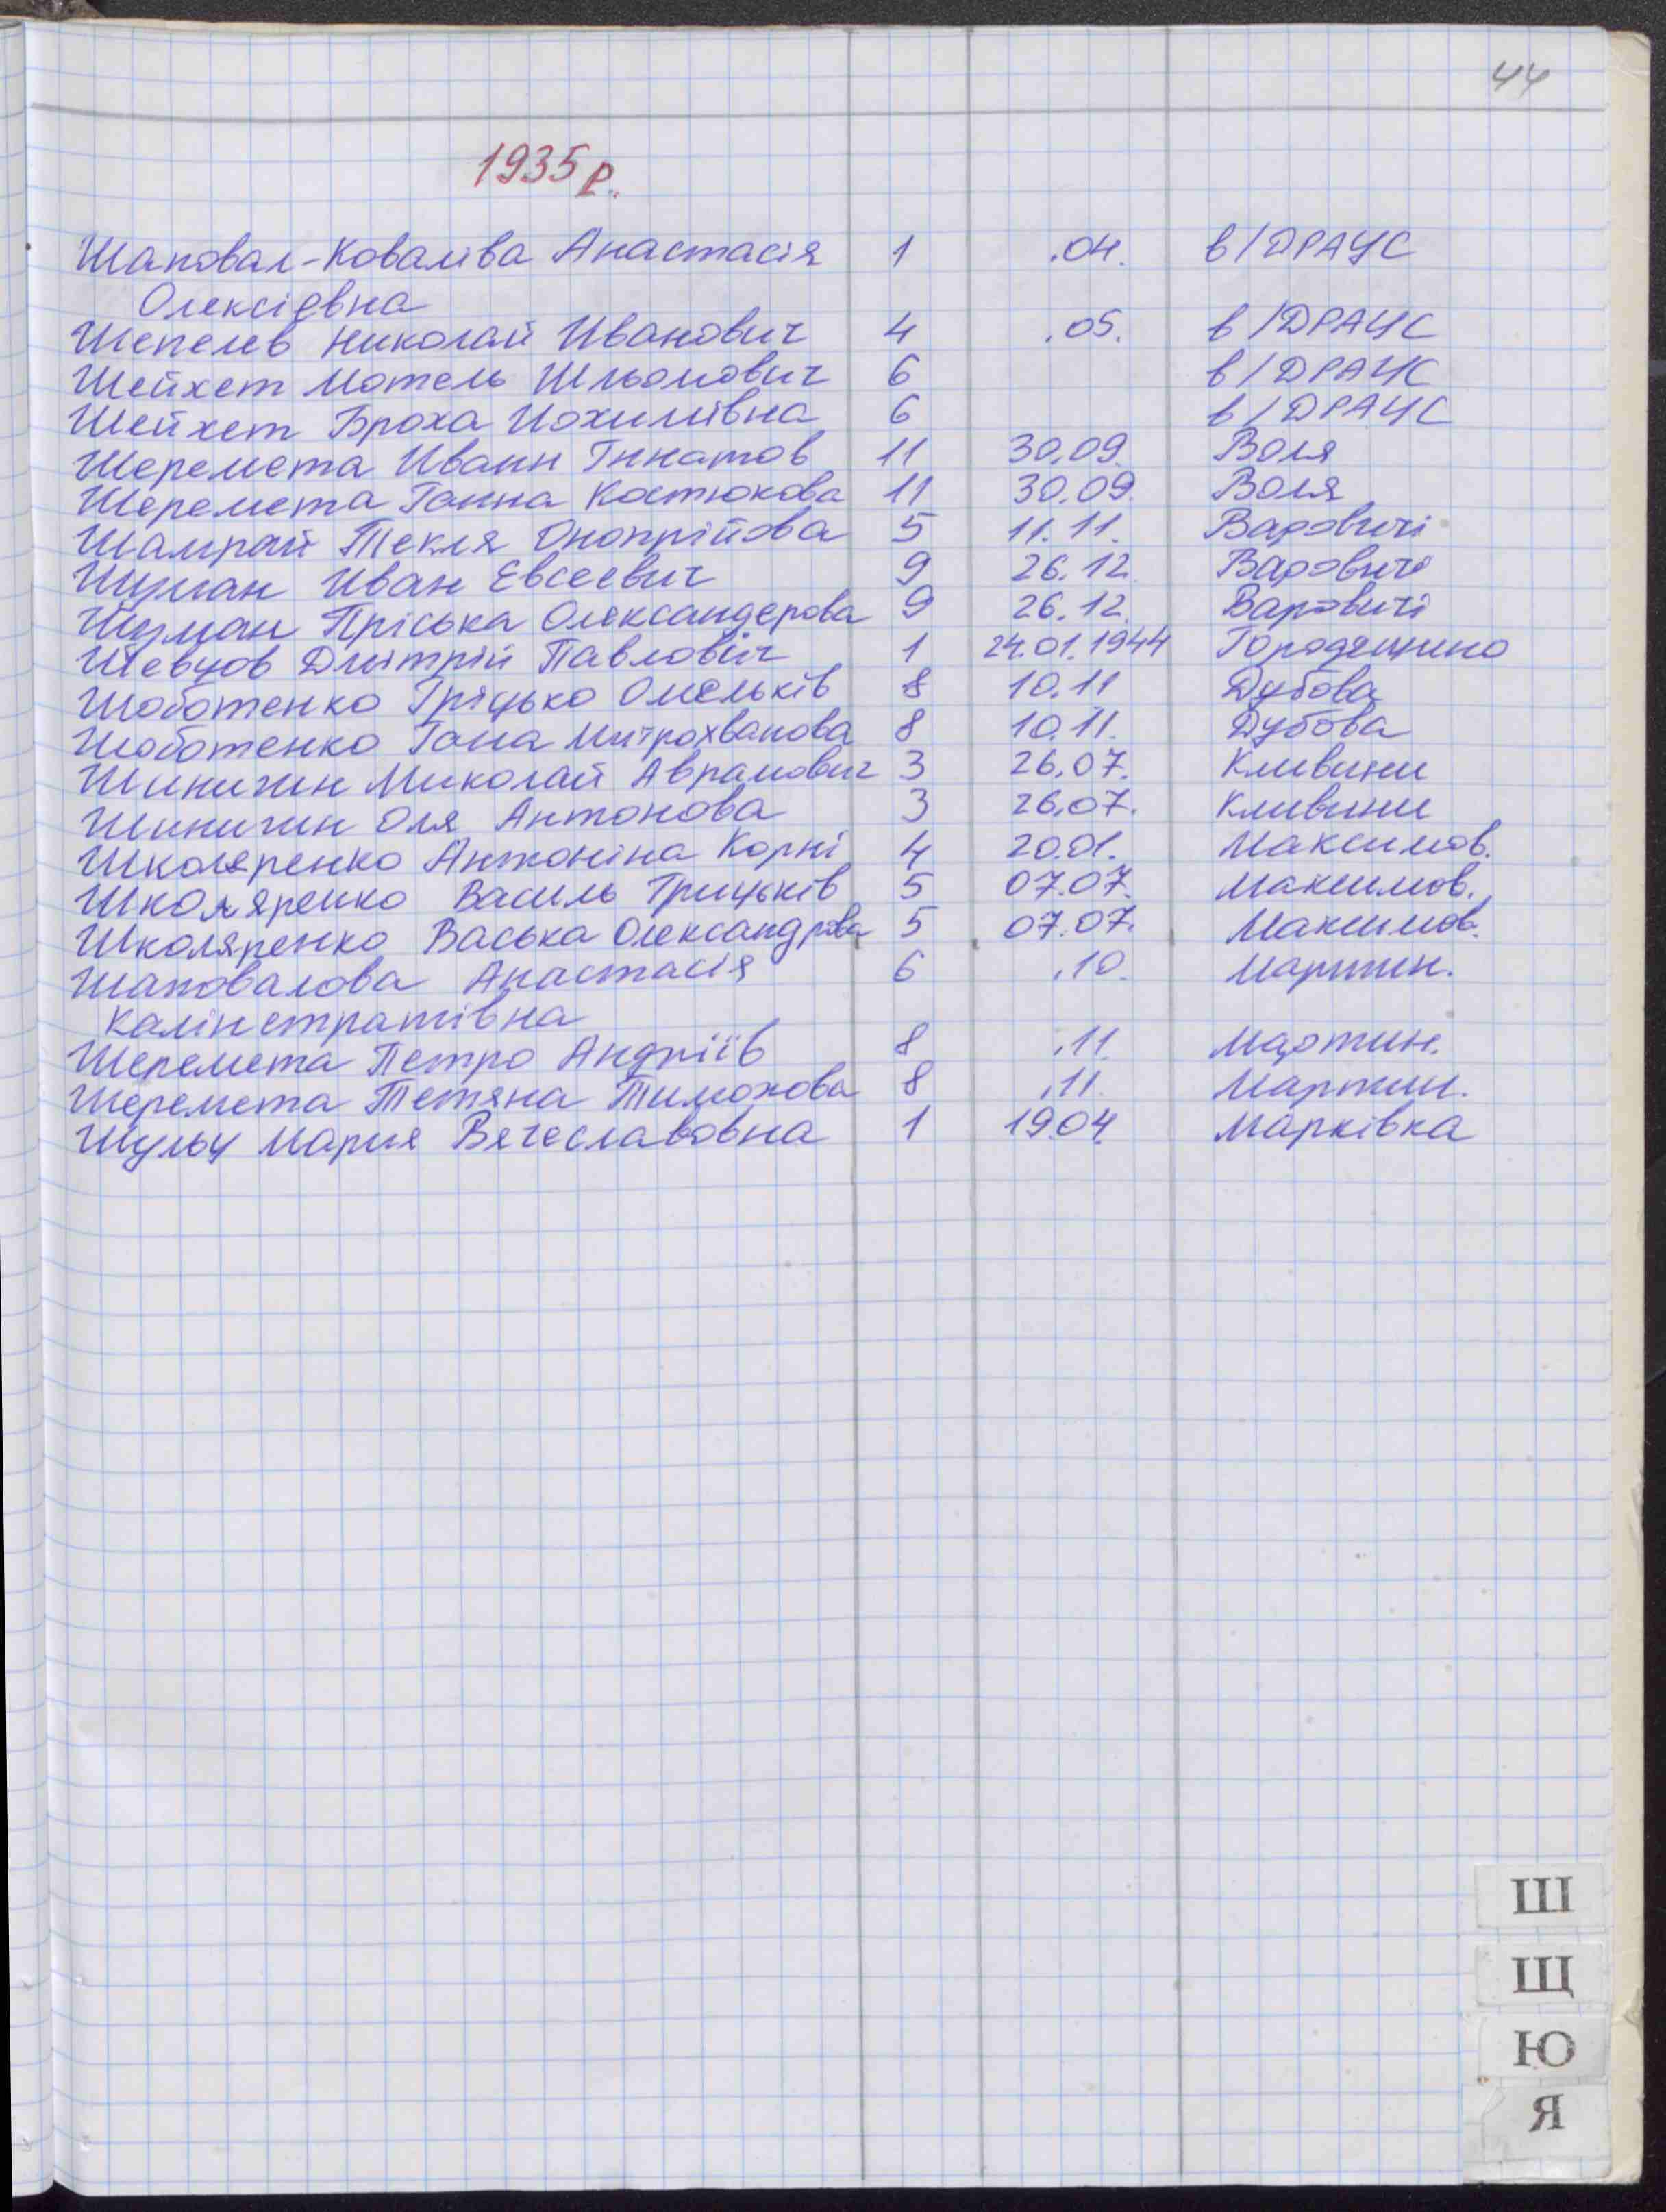 44
1935 р.
Шаповал-Коваліва Анастасія 1 .04. в/ДРАЦС
Олексієвна
Шепелев Николай Иванович 4 .05. в/ДРАЦС
Шейхет Мотель Шльомович 6 в/ДРАЦС
Шейхет Броха Йохимівна 6 в/ДРАЦС
Шеремета Иванн Ігнатов 11 30.09. Воля
Шеремета Ганна Костюкова 11 30.09. Воля
Шамрай Текля Онопрійова 5 11.11. Варовичі
Шуман Иван Евсеевич 9 26.12. Варовичі
Шуман Пріська Олександерова 9 26.12. Варовичі
Шевцов Дмітрій Павловіч 1 24.01.1944 Городещино
Шоботенко Гріцько Омельків 8 10.11 Дубова
Шоботенко Гана Митрохванова 8 10.11. Дубова
Шиничин Миколай Аврамович 3 26.07. Кливини
Шиничин Оля Антонова 3 26.07. Кливини
Школяренко Антоніна Корні 4 20.01. Максимов.
Школяренко Василь Грицьків 5 07.07. Максимов.
Школяренко Васька Олександрова 5 07.07. Максимов.
Шаповалова Анастасія 6 .10. Мартин.
Калінстратівна
Шеремета Петро Андріїв 8 .11. Мартин.
Шеремета Тетяна Тимохова 8 .11. Мартин.
Шульц Мария Вячеславовна 1 19.04. Марківка
Ш
Щ
Ю
Я